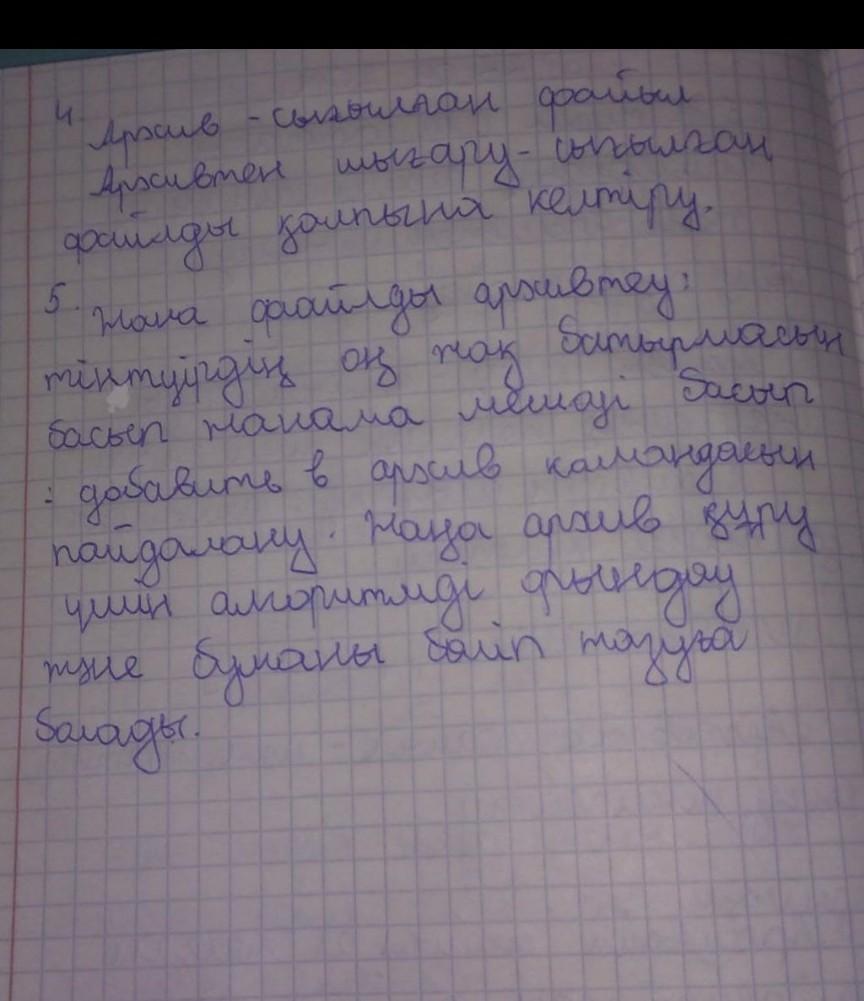 4. Архив - сығылған файыл
Архивтен шығару - сығылған
файлды қалпына келтіру.
5. Жаңа файлды архивтеу:
тінтуірдің оң жақ батырмасын
басып жанама менюді басып
: добавить в архив командасын
пайдалану. Жаңа архив құру
үшін алгоритмді орындау
және буманы бөліп тазуға
болады.